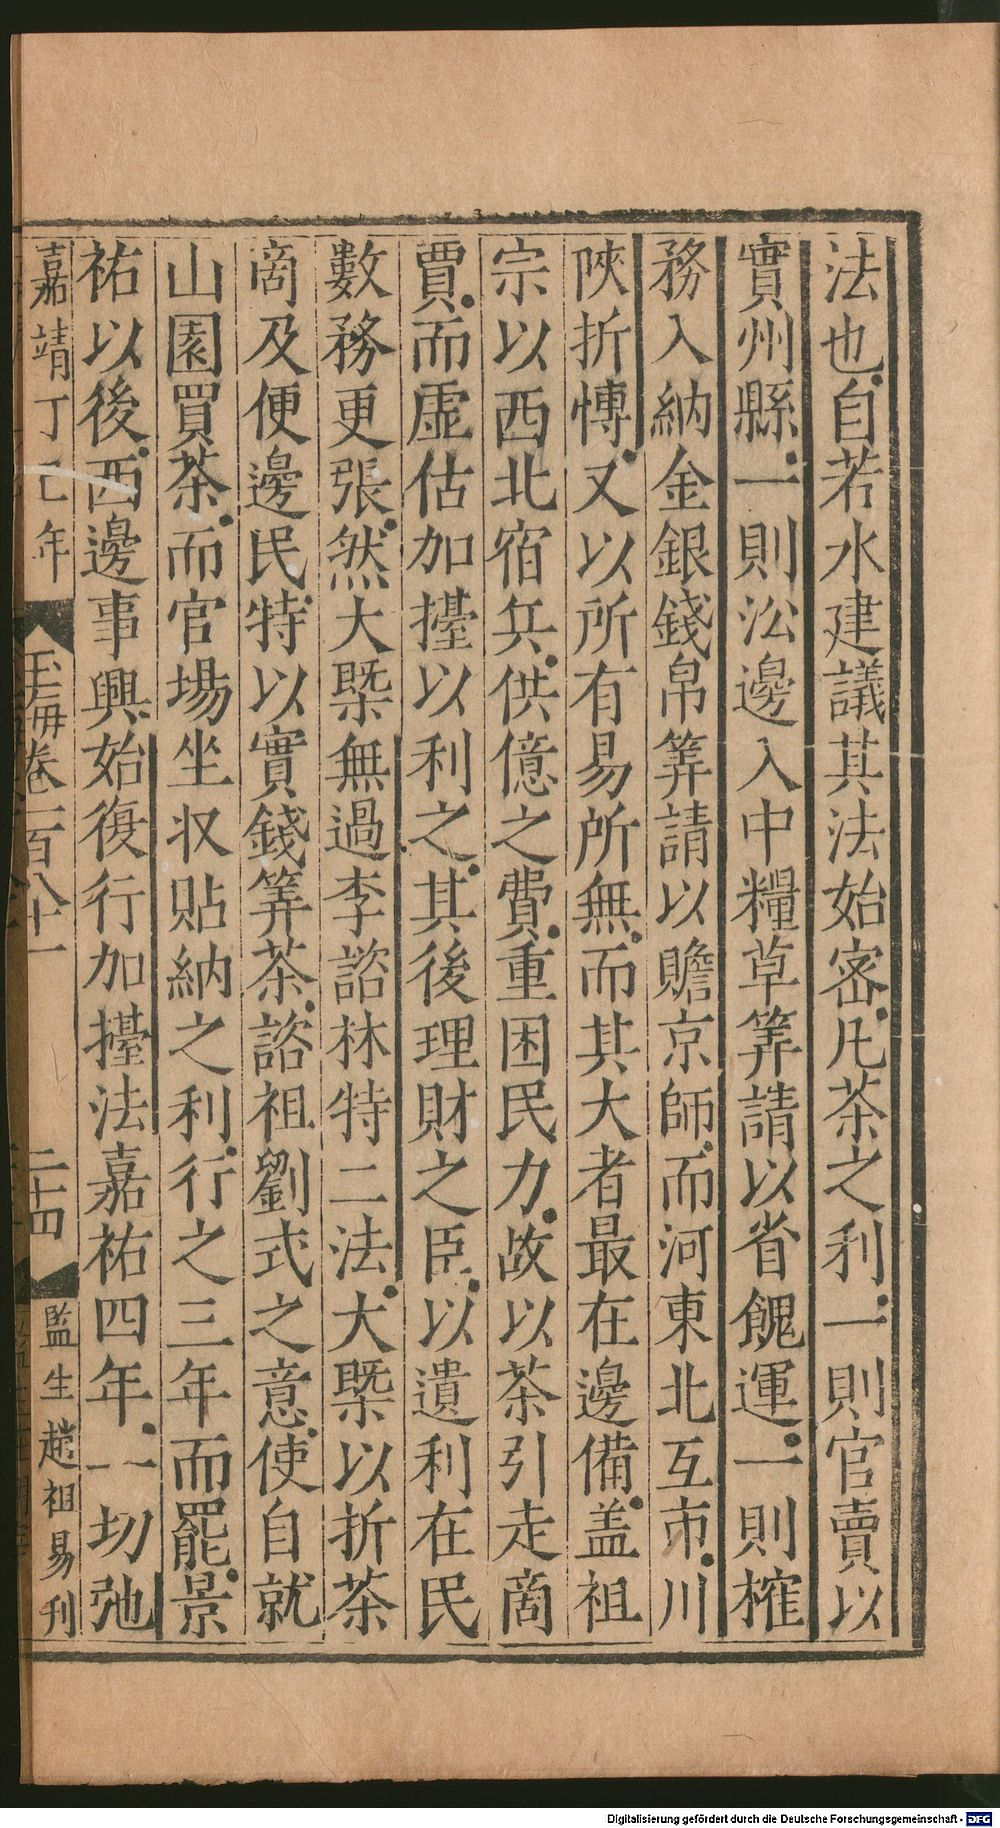 法也自若水建議其法始宻凡茶之利一則官賣以
實州縣一則㳂邊入中糧草筭請以省餽運一則㩁
務入納金銀錢帛筭請以贍京師而河東北互市川
陜折愽又以所有易所無而其大者最在邊備盖祖
宗以西北宿兵供億之費重困民力故以茶引走商
賈而虛估加擡以利之其後理財之臣以遺利在民
數務更張然大槩無過李諮林特二法大槩以折茶
商及便邊民特以實錢筭茶諮祖劉式之意使自就
山園買茶而官場坐収貼納之利行之三年而罷景
祐以後西邊事興始復行加擡法嘉祐四年一切弛
嘉靖丁巳年 玉海卷一百八十一 二十四 監生趙祖易刋
Digitalisierung gefördert durch die Deutsche Forschungsgemeinschaft - DFG